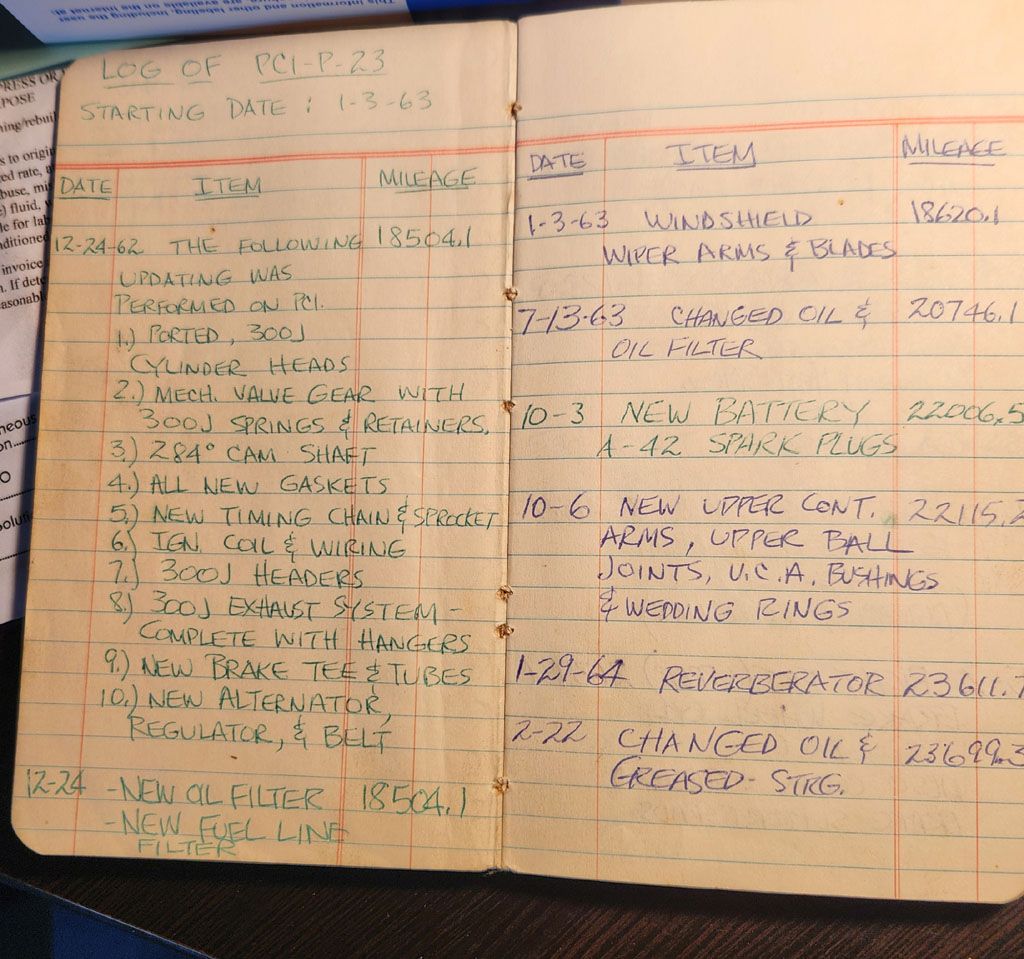 This information and other labeling, including the user
are available on the
Internet at:
PRESS OR
POSE
s to origin
ed rate,
buse,
fluid,
le for lab
nditioned
invoice
n. If
LOG OF PCI-P-23
STARTING DATE : 1-3-63
DATE ITEM MILEAGE
12-24-62 THE FOLLOWING 18504.1
UPDATING WAS
PERFORMED ON PCI.
1.) PORTED, 300J
CYLINDER HEADS
2.) MECH. VALVE GEAR WITH
300J SPRINGS & RETAINERS.
3.) 284° CAM SHAFT
4.) ALL NEW GASKETS
5.) NEW TIMING CHAIN & SPROCKET
6.) IGN. COIL & WIRING
7.) 300J HEADERS
8.) 300J EXHAUST SYSTEM -
COMPLETE WITH HANGERS
9.) NEW BRAKE TEE & TUBES
10.) NEW ALTERNATOR,
REGULATOR, & BELT
12-24 -NEW OIL FILTER 18504.1
-NEW FUEL LINE
FILTER
DATE ITEM MILEAGE
1-3-63 WINDSHIELD 18620.1
WIPER ARMS & BLADES
7-13-63 CHANGED OIL & 20746.1
OIL FILTER
10-3 NEW BATTERY 22006.5
A-42 SPARK PLUGS
10-6 NEW UPPER CONT. 22115.2
ARMS, UPPER BALL
JOINTS, U.C.A. BUSHINGS
& WEDDING RINGS
1-29-64 REVERBERATOR 23611.7
2-22 CHANGED OIL & 23699.3
GREASED- STRG.